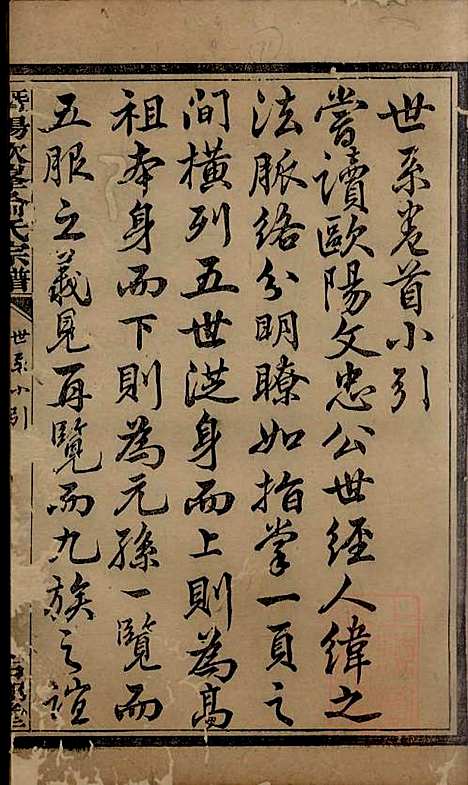 世系卷首小引
嘗讀歐陽文忠公世經人緯之
法脈絡分明瞭如指掌一頁之
间橫列五世從身而上則為高
祖夲身而下則為元孫一覽而
五服之義見再覽而九族之誼
氏宗譜
世系小引